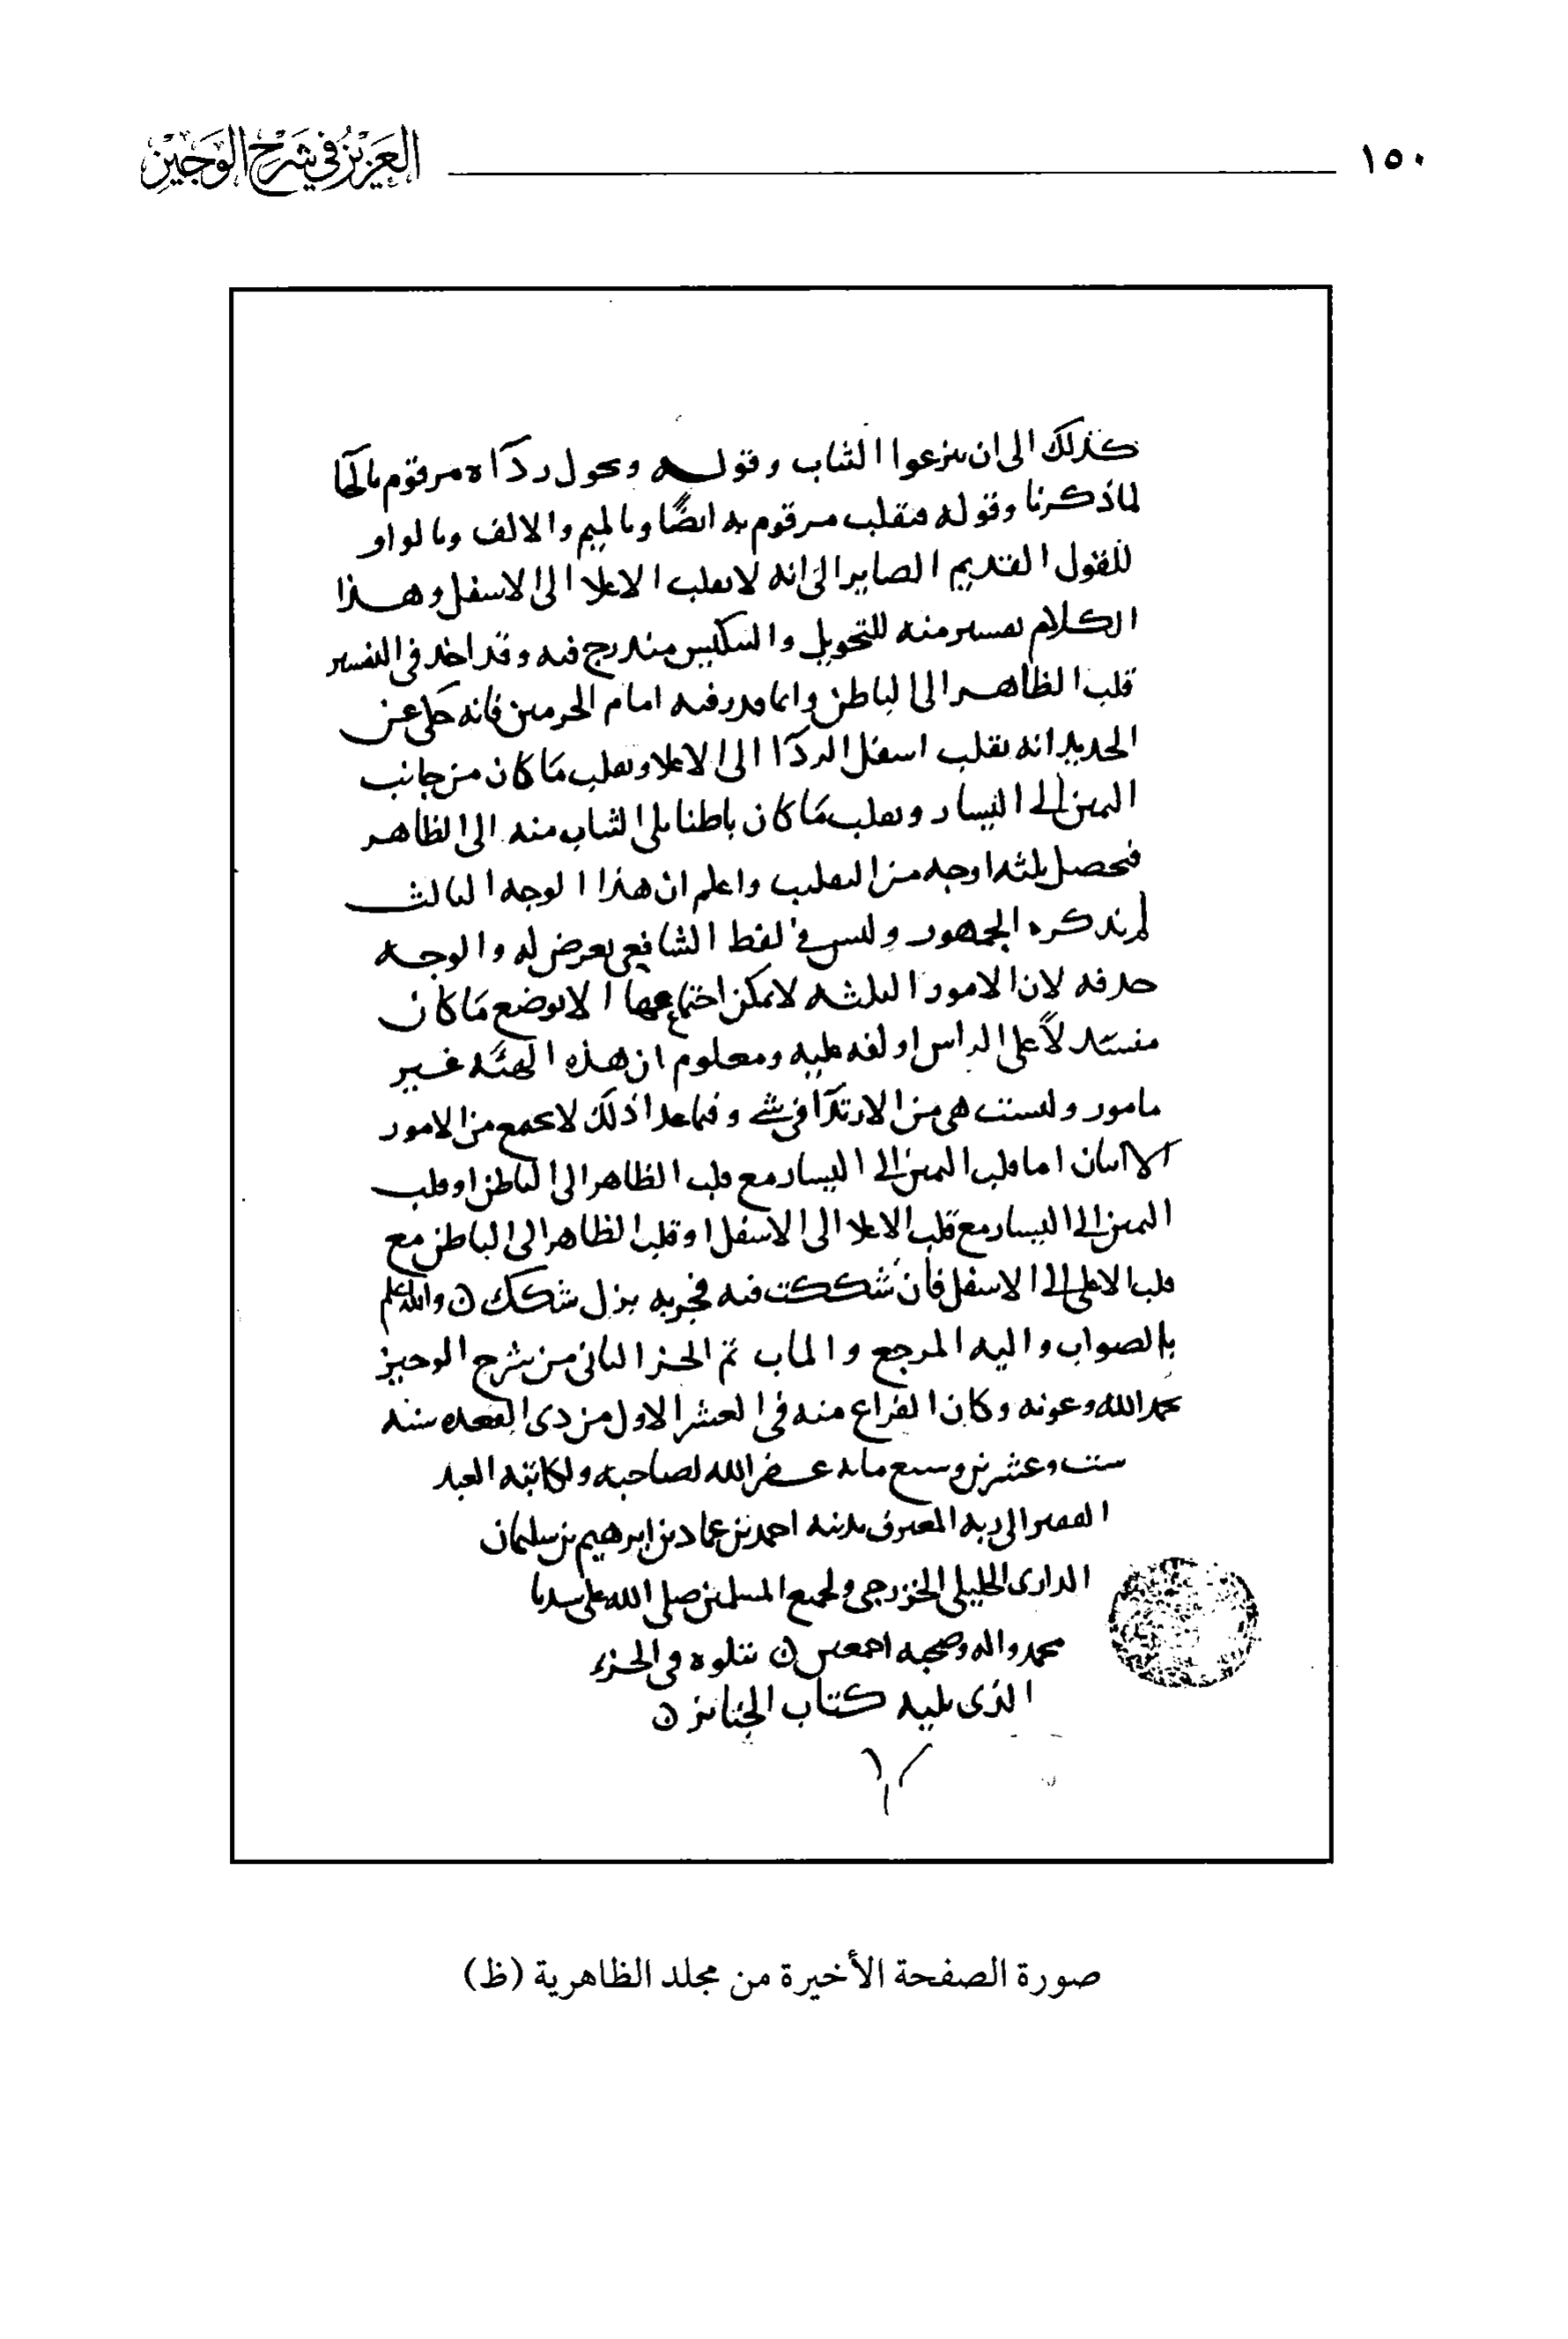 ١٥٠
العزيز في شرح الوجيز
كذلك الى ان ينزعوا الثياب وقوله ويحول رداه مرقوم بالحا
لما ذكرنا وقوله فيقلب مرقوم به ايضًا وبالميم والالف وبالواو
للقول القديم الصاير الى انه لا يقلب الاعلا الى الاسفل وهذا
الكلام تفسير منه للتحويل والتنكيس مندرج فيه وقد اخذ في التفسير
قلب الظاهر الى الباطن وانما فيه امام الحرمين فانه حكى عن
الجديد انه يقلب اسفل الردا الى الاعلا ويقلب ما كان من جانب
اليمين الى اليسار ويقلب ما كان باطنا يلي الثياب منه الى الظاهر
فيحصل ثلثه اوجه من التقليب واعلم ان هذا الوجه الثالث
لم يذكره الجمهور وليس في لفظ الشافعي تعرض له والوجه
حذفه لان الامور الثلثه لا يمكن اجتماعها الا بوضع ما كان
منسدلاً على الراس او لفه عليه ومعلوم ان هذه الهيئه غير
مامور وليست هي من الارتدا في شي وفيما عدا ذلك لا يجمع من الامور
الا اثنان اما قلب اليمين الى اليسار مع قلب الظاهر الى الباطن او قلب
اليمين الى اليسار مع قلب الاعلا الى الاسفل او قلب الظاهر الى الباطن مع
قلب الاعلى الى الاسفل فان شككت فيه فجربه يزل شكك والله اعلم
بالصواب واليه المرجع والماب تم الجز الثاني من شرح الوجيز
بحمد الله وعونه وكان الفراغ منه في العشر الاول من ذى القعده سنه
ست وعشرين وسبع مايه غفر الله لصاحبه ولكاتبه العبد
الفقير الى ربه المعترف بذنبه احمد بن عماد بن ابرهيم بن سليمان
الدارى الخليلى الخزرجى ولجميع المسلمين صلى الله على سيدنا
محمد واله وصحبه اجمعين يتلوه فى الجزء
الذى يليه كتاب الجنايز
صورة الصفحة الأخيرة من مجلد الظاهرية (ظ)